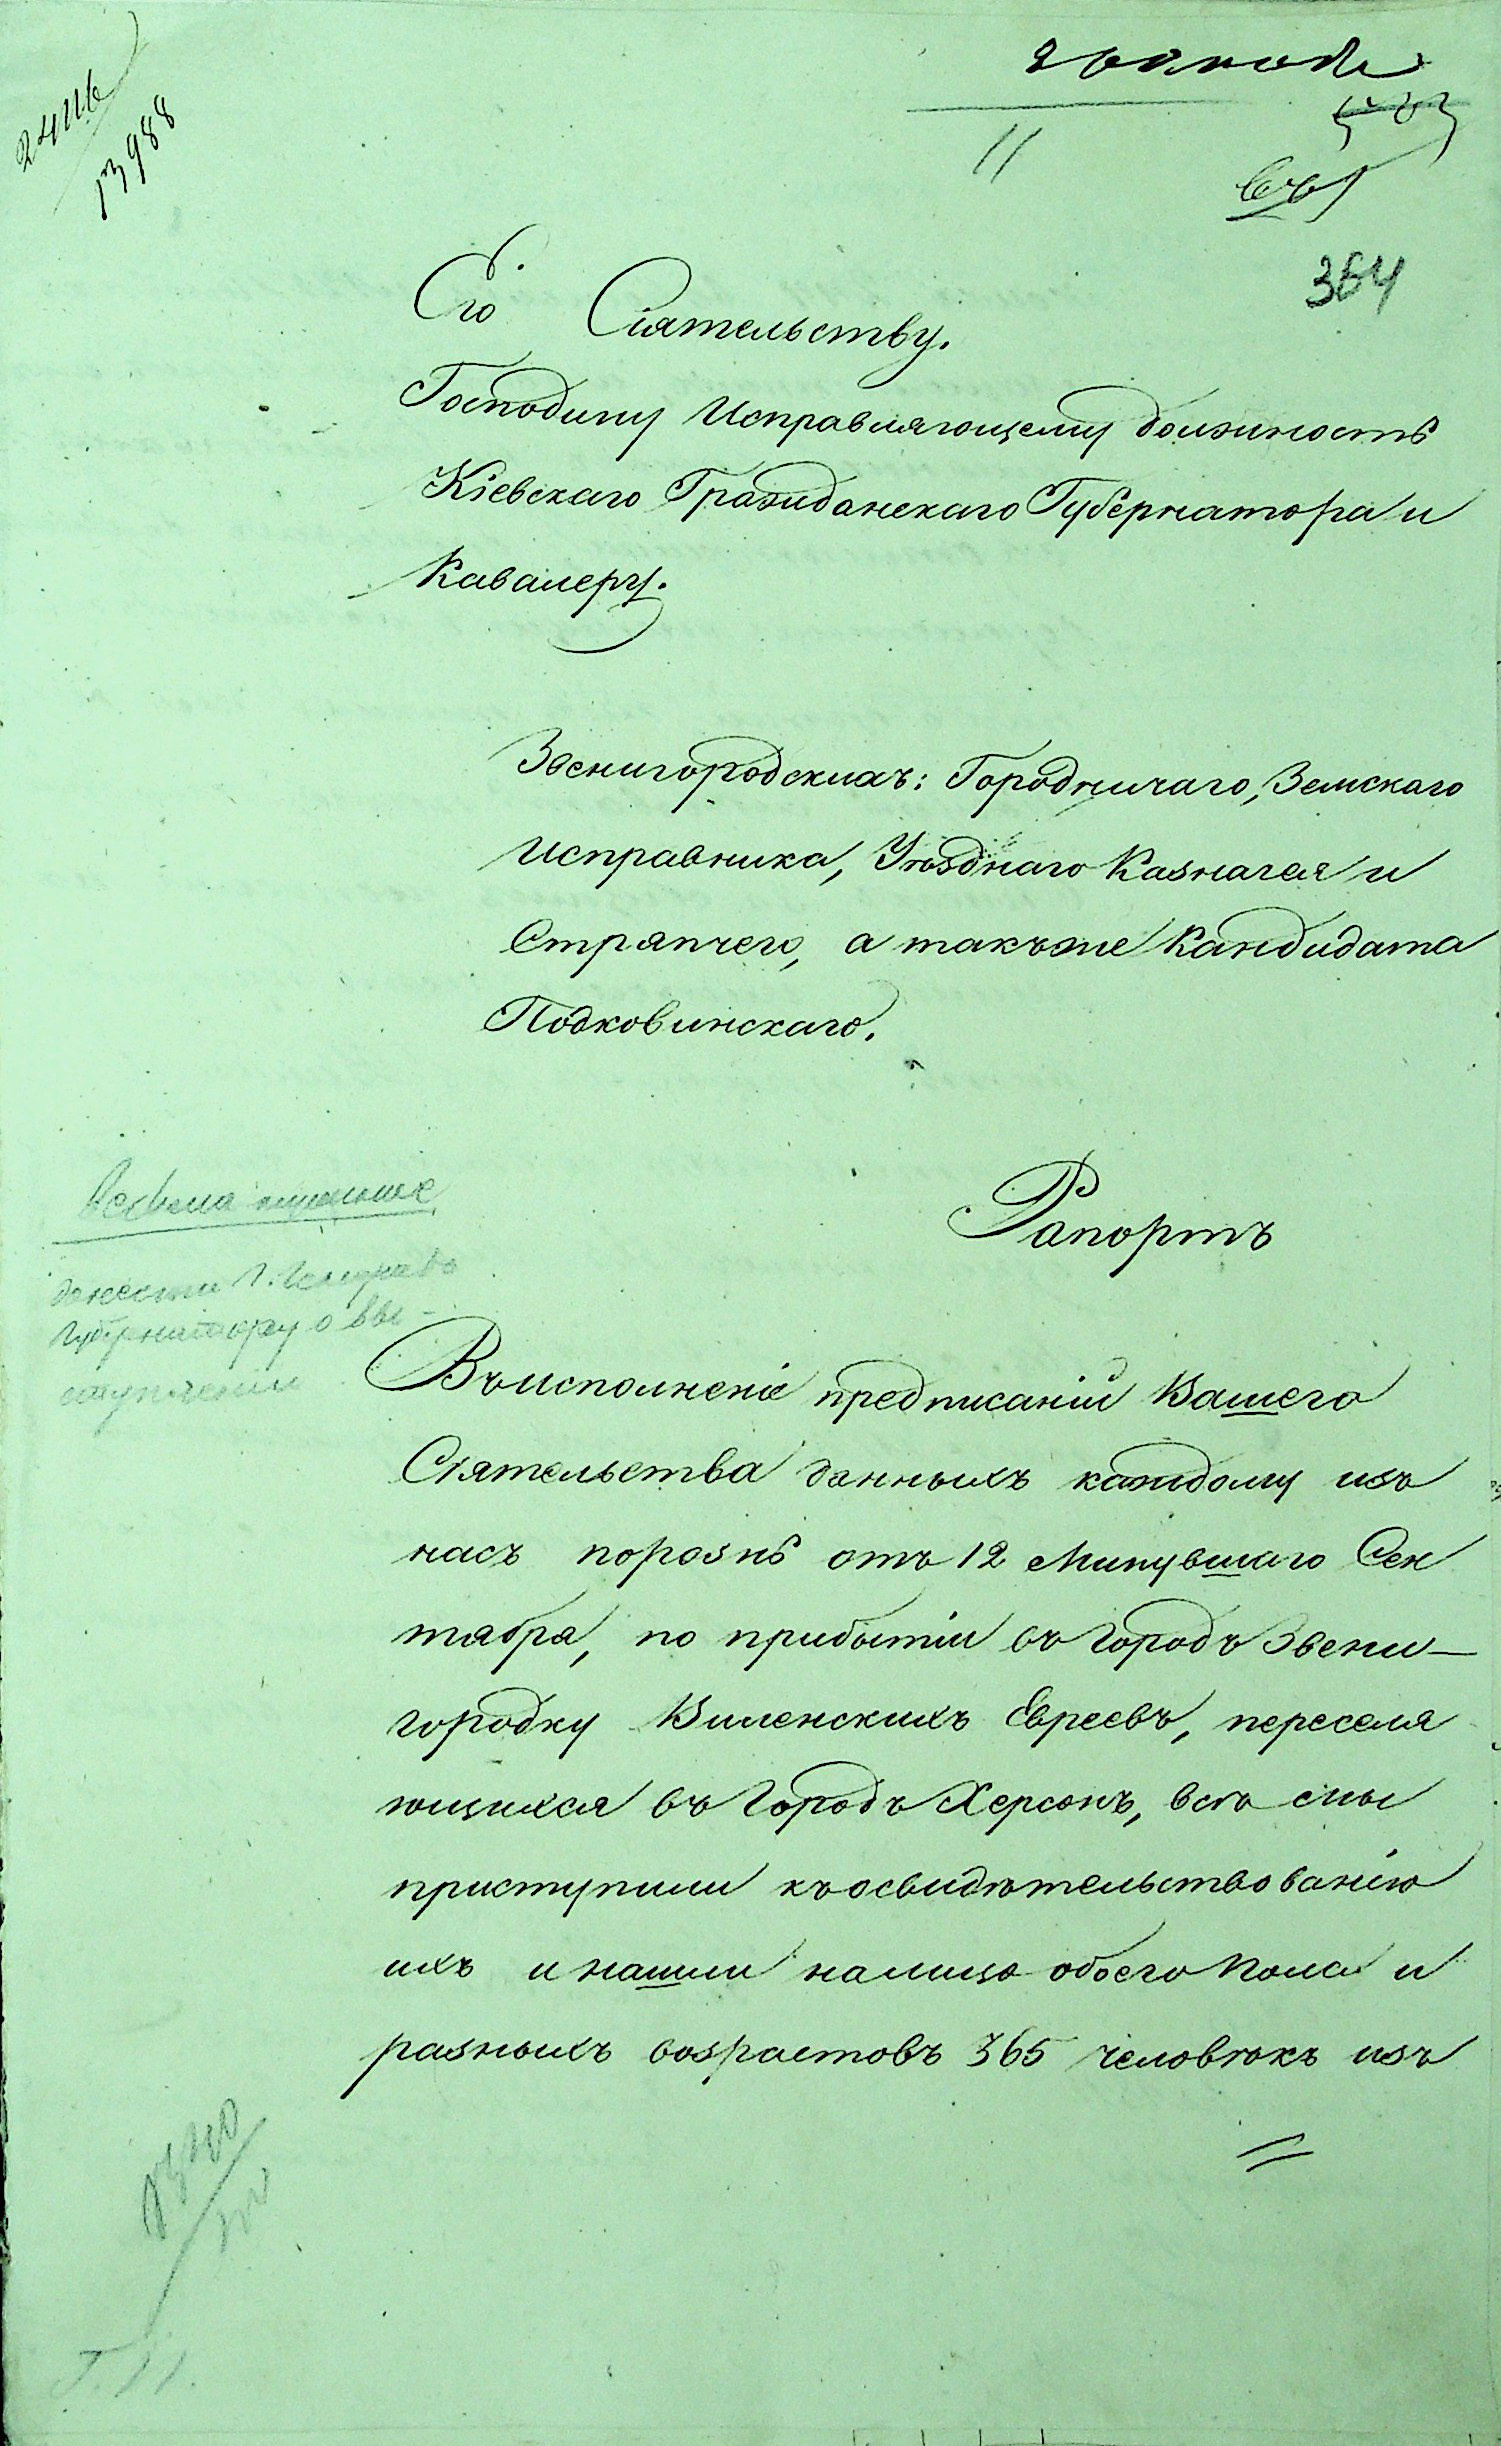 24116
13988
11
364
Его Сіятельству.
Господину Исправляющему должность
Кіевскаго Гражданскаго Губернатора и
Кавалеру.
Звенигородскихъ: Городничаго, Земскаго
Исправника, Уѣзднаго Казначея и
Стряпчего, а такъже Кандидата
Подковинскаго.
Рапортъ
донести Г. Генералъ
Губернатору о вы-
ступленіи
Въ исполненіе предписаній Вашего
Сіятельства данныхъ каждому изъ
насъ порознь отъ 12 Минувшаго Сен
тября, по прибытіи въ Городъ Звени-
городку Виленскихъ Евреевъ, переселя
ющихся въ Городъ Херсонъ, всѣ мы
приступили къ освидѣтельствованію
ихъ и нашли налицо обоего пола и
разныхъ возрастовъ 365 человѣкъ изъ